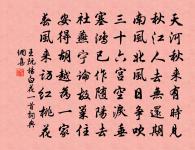 天河秋來有時見
秋江人去無還期
南風北風日爭吹
三十六宮空淚垂
塞鴻已作隨陽去
社燕寧論故巢住
安得胡越為一家
春風來訪紅桃花
王阮楊白花一首詞典
網